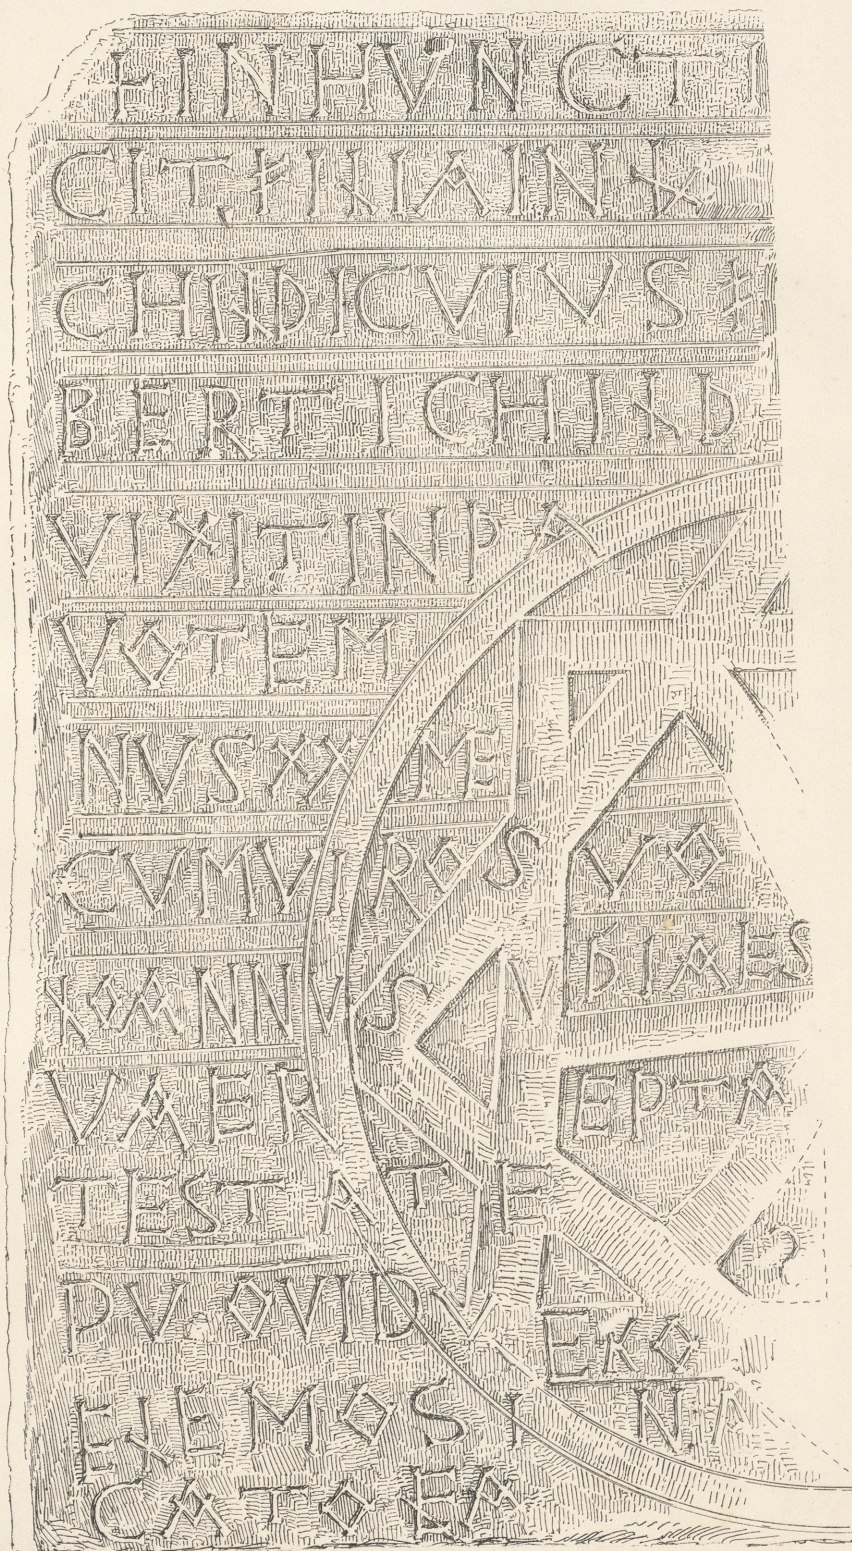 +INHVNCTI
CITFILIAIN L
CHILDICVIVS F
BERTICHILD
VIXITINPA
VOTEM
NVSXX ME
CVMVIROS VO
LOANNVS V DIAES
VAER EPTA
TESTATE S
PV OVIDV EKO
ELEMOSI NA
CATOEA